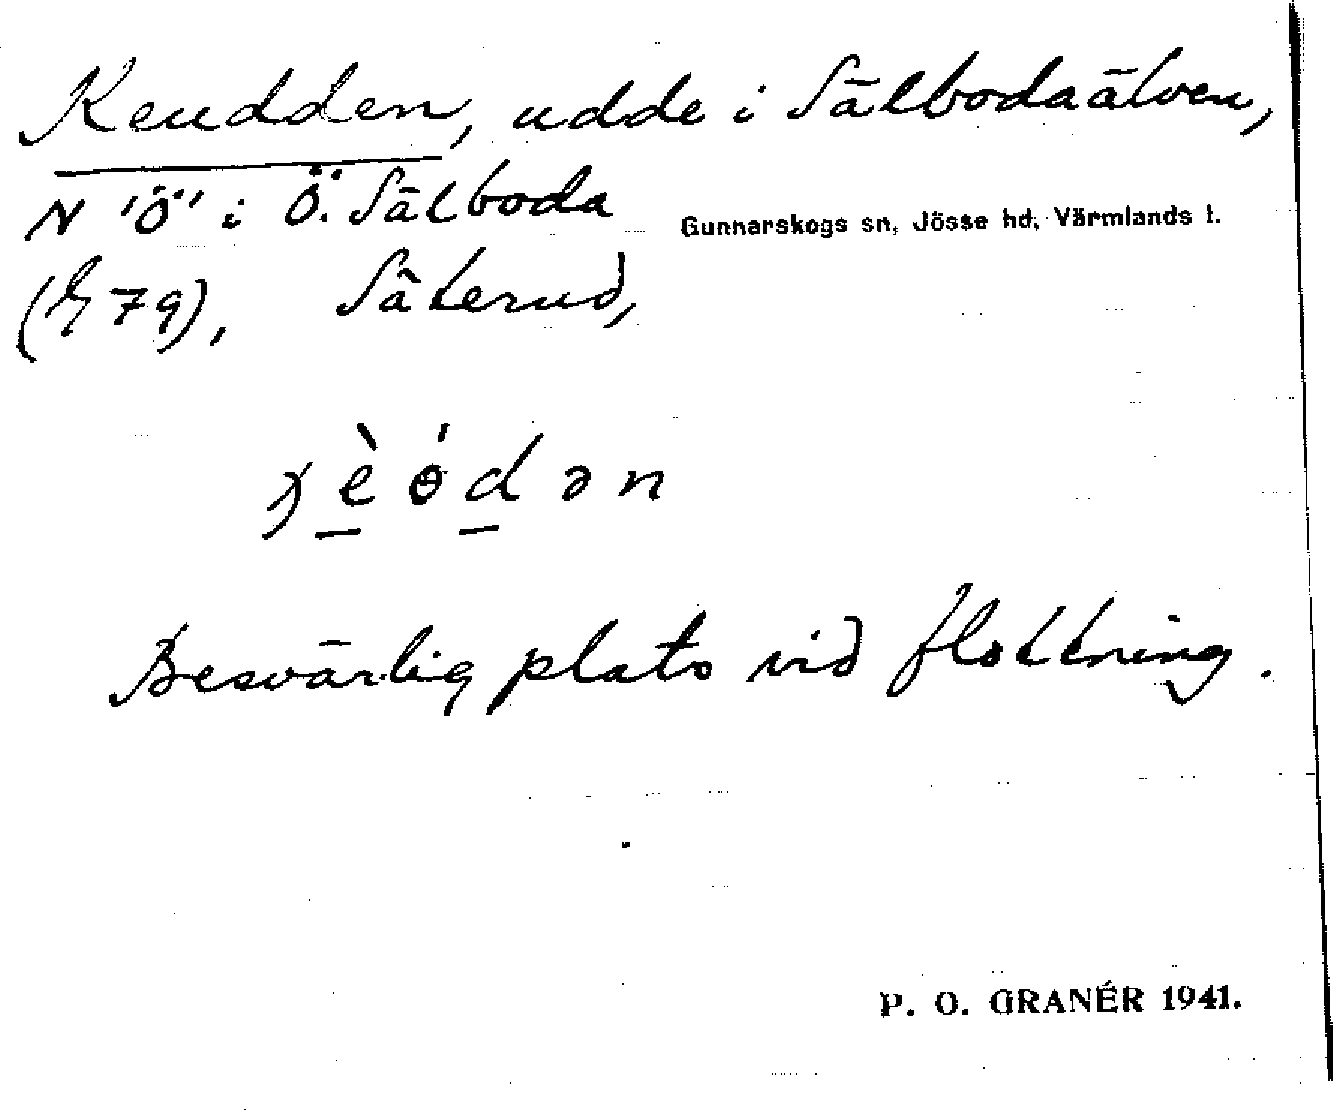 Keudden, udde i Sälbodaälven,
N 'Ö' i Ö. Sälboda
Gunnarskogs sn, Jösse hd, Värmlands l.
79), Säterud,
Besvärlig plats vid flottning.
P. O. GRANÉR 1941.